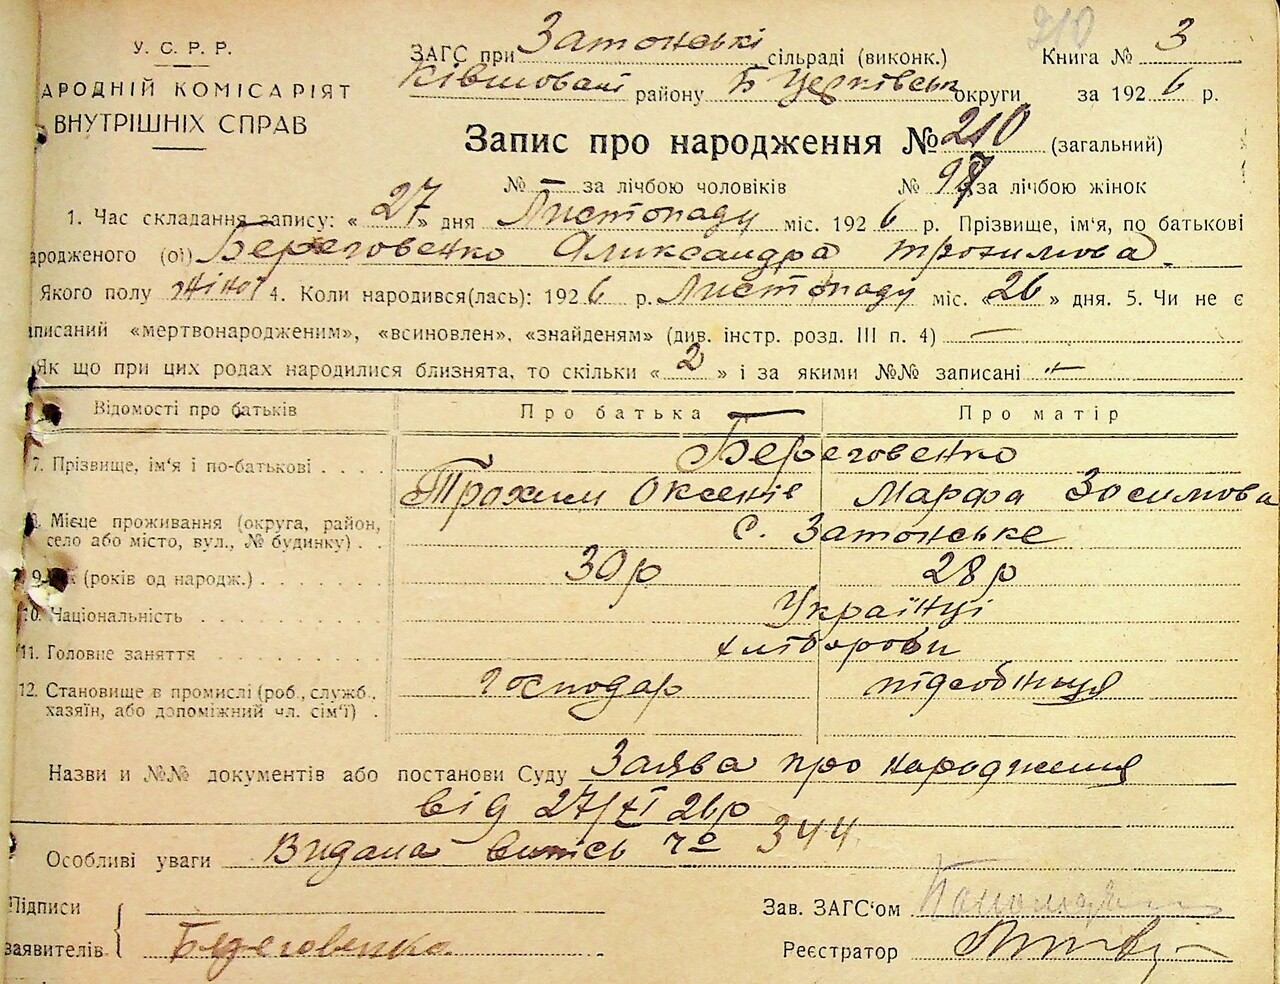 У. С. Р. Р.
АРОДНІЙ КОМІСАРІЯТ
ВНУТРІШНІХ СПРАВ
210
ЗАГС при Затонські сільраді (виконк.) Книга № 3
Ківшоваті району Б Церківськ округи за 1926 р.
Запис про народження № 210 (загальний)
№ — за лічбою чоловіків № 97 за лічбою жінок
1. Час складання запису: « 27 » дня Листопаду міс. 1926 р. Прізвище, ім'я, по батькові
ародженого (ої) Береговенко Александра Трохимова
Якого полу жіно 4. Коли народився(лась): 1926 р. Листопаду міс. « 26 » дня. 5. Чи не є
аписаний «мертвонародженим», «всиновлен», «знайденям» (див. інстр. розд. III п. 4) —
Як що при цих родах народилися близнята, то скільки « 2 » і за якими №№ записані
Відомості про батьків Про батька Про матір
7. Прізвище, ім'я і по-батькові . . . . Береговенко
Трохим Оксенів Марфа Зосимова
8. Місце проживання (округа, район,
село або місто, вул., № будинку) . . С. Затонське
9. (років од народж.) . . . . . . . 30 р 28 р
10. Національність . . . . . . . . . . Українці
11. Головне заняття . . . . . . . . . хліборови
12. Становище в промислі (роб., служб., Господар підсобниця
хазяїн, або допоміжний чл. сім'ї) .
Назви и №№ документів або постанови Суду Заява про народження
від 27/XI 26р
Особливі уваги Видана витсь № 344
Підписи Зав. ЗАГС'ом
заявителів Береговенко Реєстратор